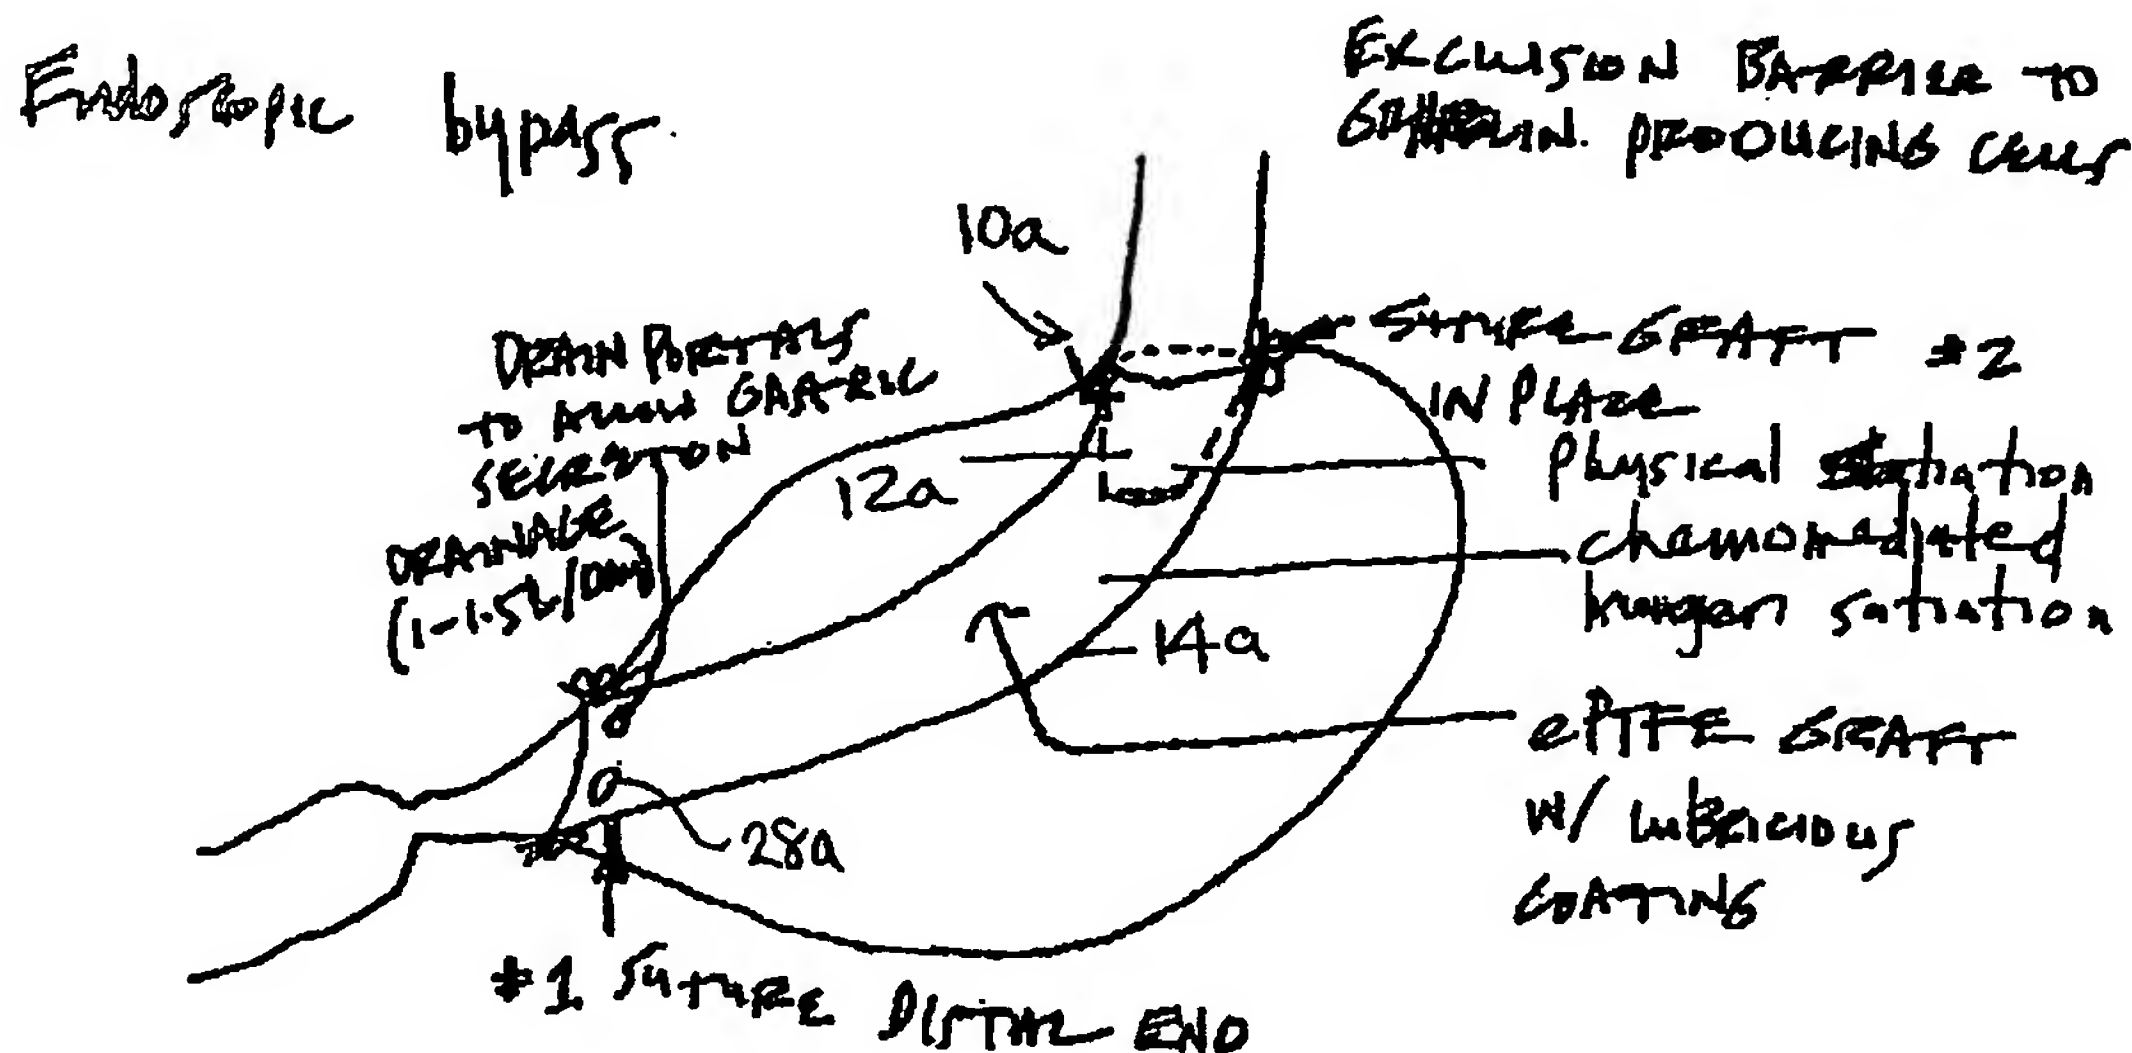 Endoscopic bypass
EXCLUSION BARRIER TO
GHRELIN PRODUCING CELLS
10a
DRAIN PORTALS
TO ALLOW GASTRIC
SECRETION
DRAINAGE
(1-1.5L/DAY)
SUTURE GRAFT #2
IN PLACE
12a
Physical satiation
chemomediated
hunger satiation
14a
ePTFE GRAFT
W/ LUBRICIOUS
COATING
28a
#1 SUTURE DISTAL END